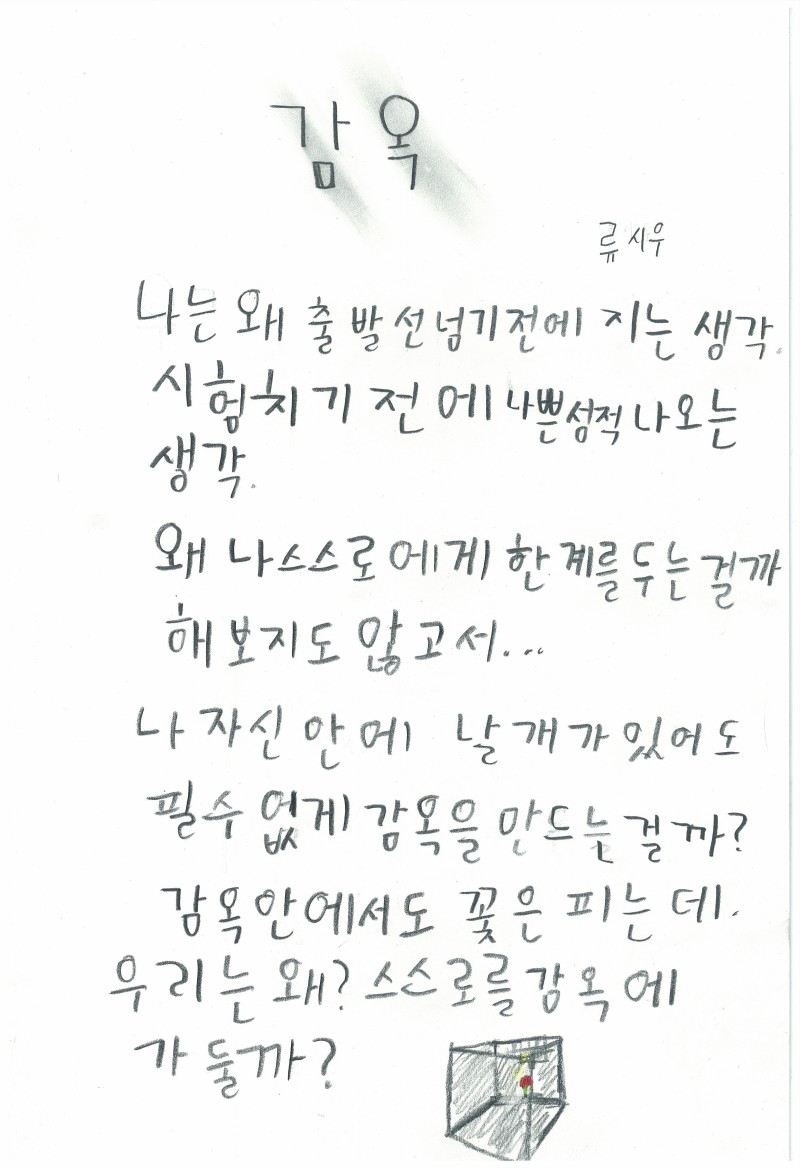 감옥
류시우
나는 왜 출발선넘기전에 지는 생각.
시험치기 전에 나쁜성적 나오는
생각.
왜 나스스로에게 한계를 두는걸까
해보지도 않고서...
나 자신 안에 날개가 있어도
필수 없게 감옥을 만드는 걸까?
감옥안에서도 꽃은 피는데.
우리는 왜? 스스로를 감옥에
가둘까?